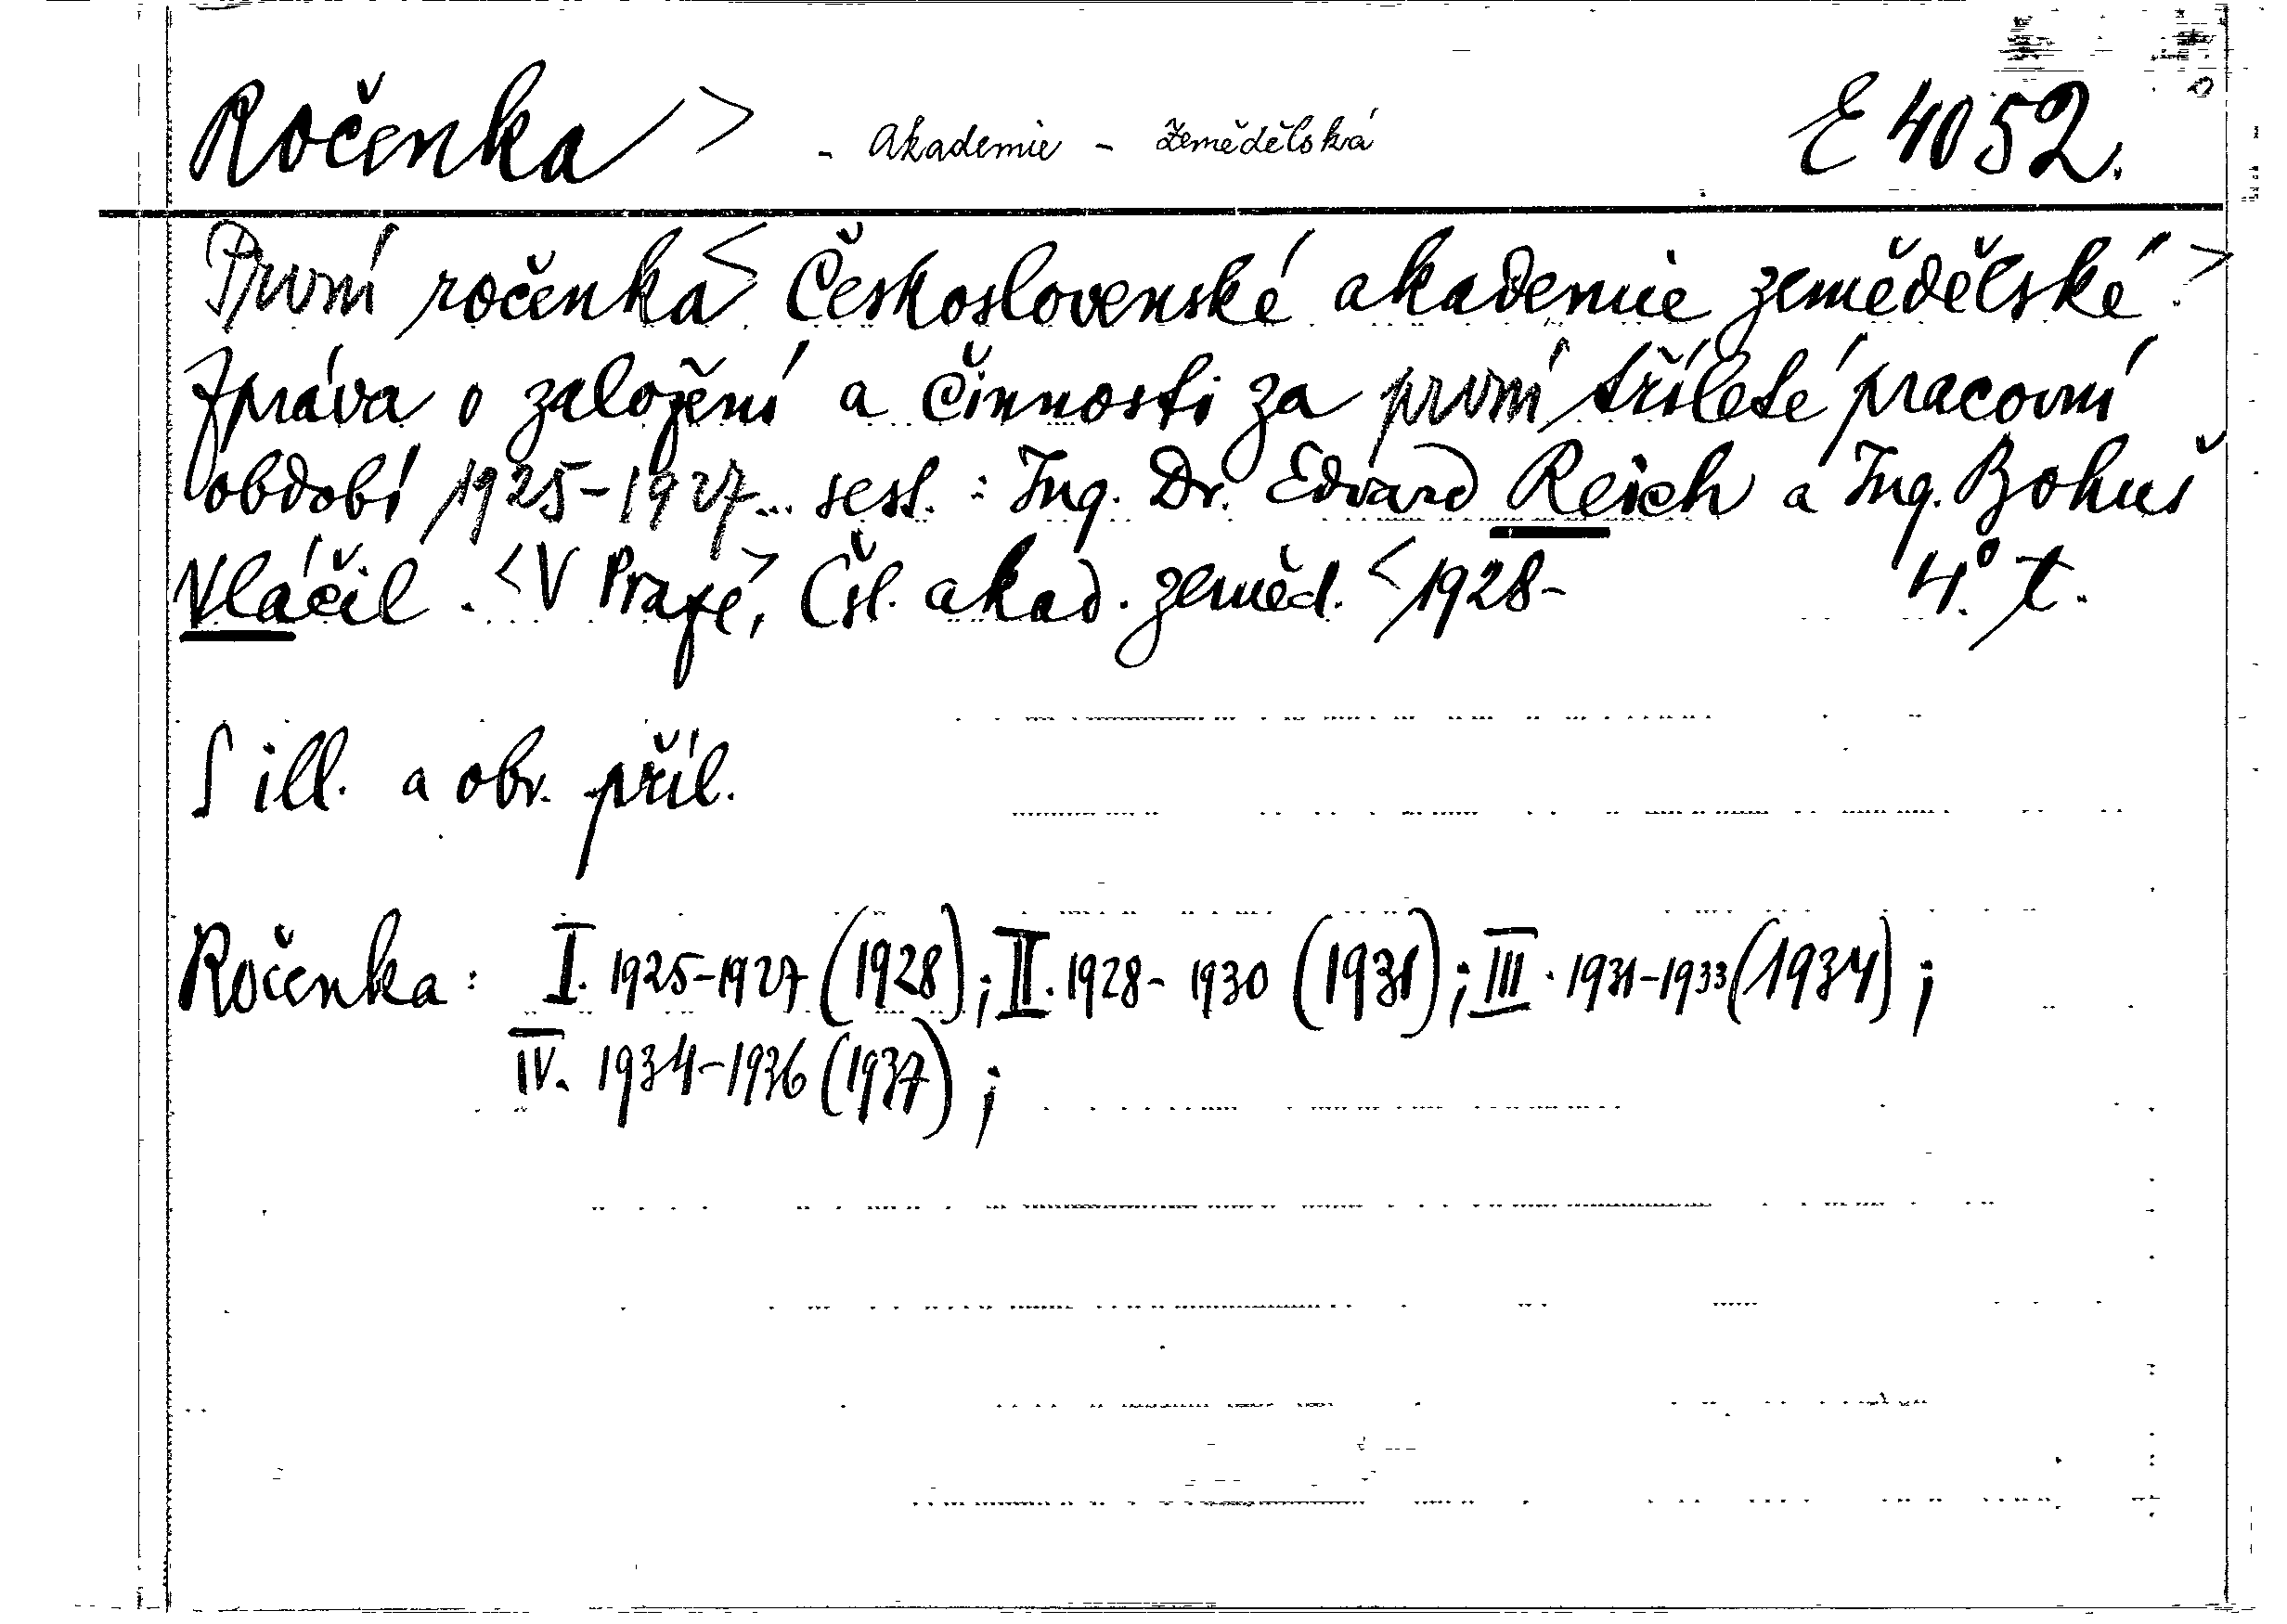 Ročenka > - Akademie - Zemědělská E 4052.
První ročenka <> Československé akademie zemědělské. >
Zpráva o založení a činnosti za první tříleté pracovní
období 1925-1927... sest. : Ing. Dr. Edvard Reich a Ing. Bohuš
Vláčil. < V Praze, > Čsl. akad. zeměd. < 1928- 4.° t.
S ill. a obr. příl.
Ročenka: I. 1925-1927 (1928); II. 1928- 1930 (1931); III. 1931-1933 (1934);
IV. 1934-1936 (1937);